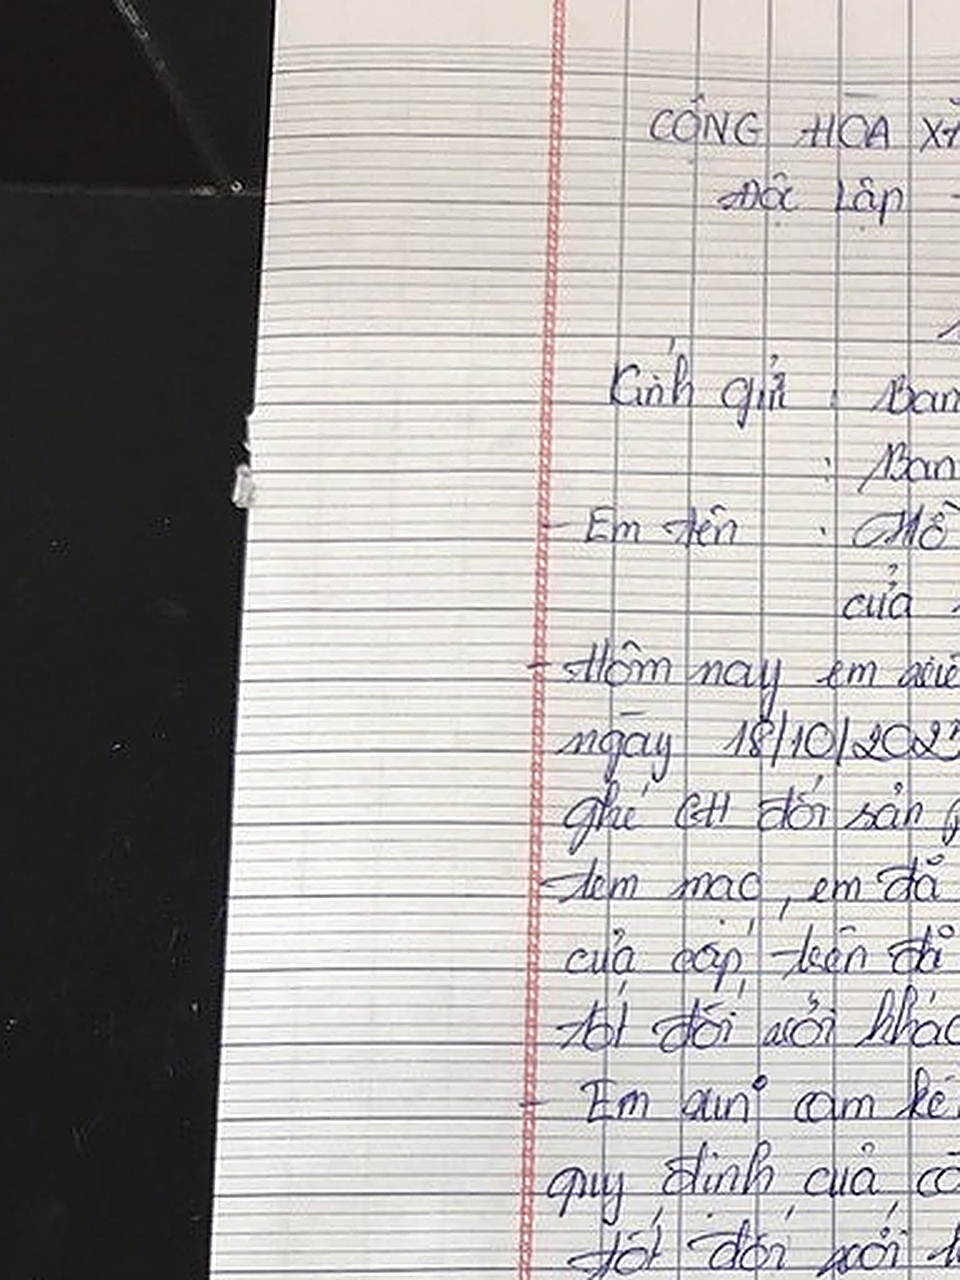 CỘNG HÒA XÃ
Độc Lập -
Kính gửi : Ban
: Ban
- Em tên : Hồ
của
- Hôm nay em
ngày 18/10/2023
ghé CH đổi sản
tem mac, em đã
của cấp trên
tốt đối với khác
- Em xin cam kế
quy định của cô
tốt đối với